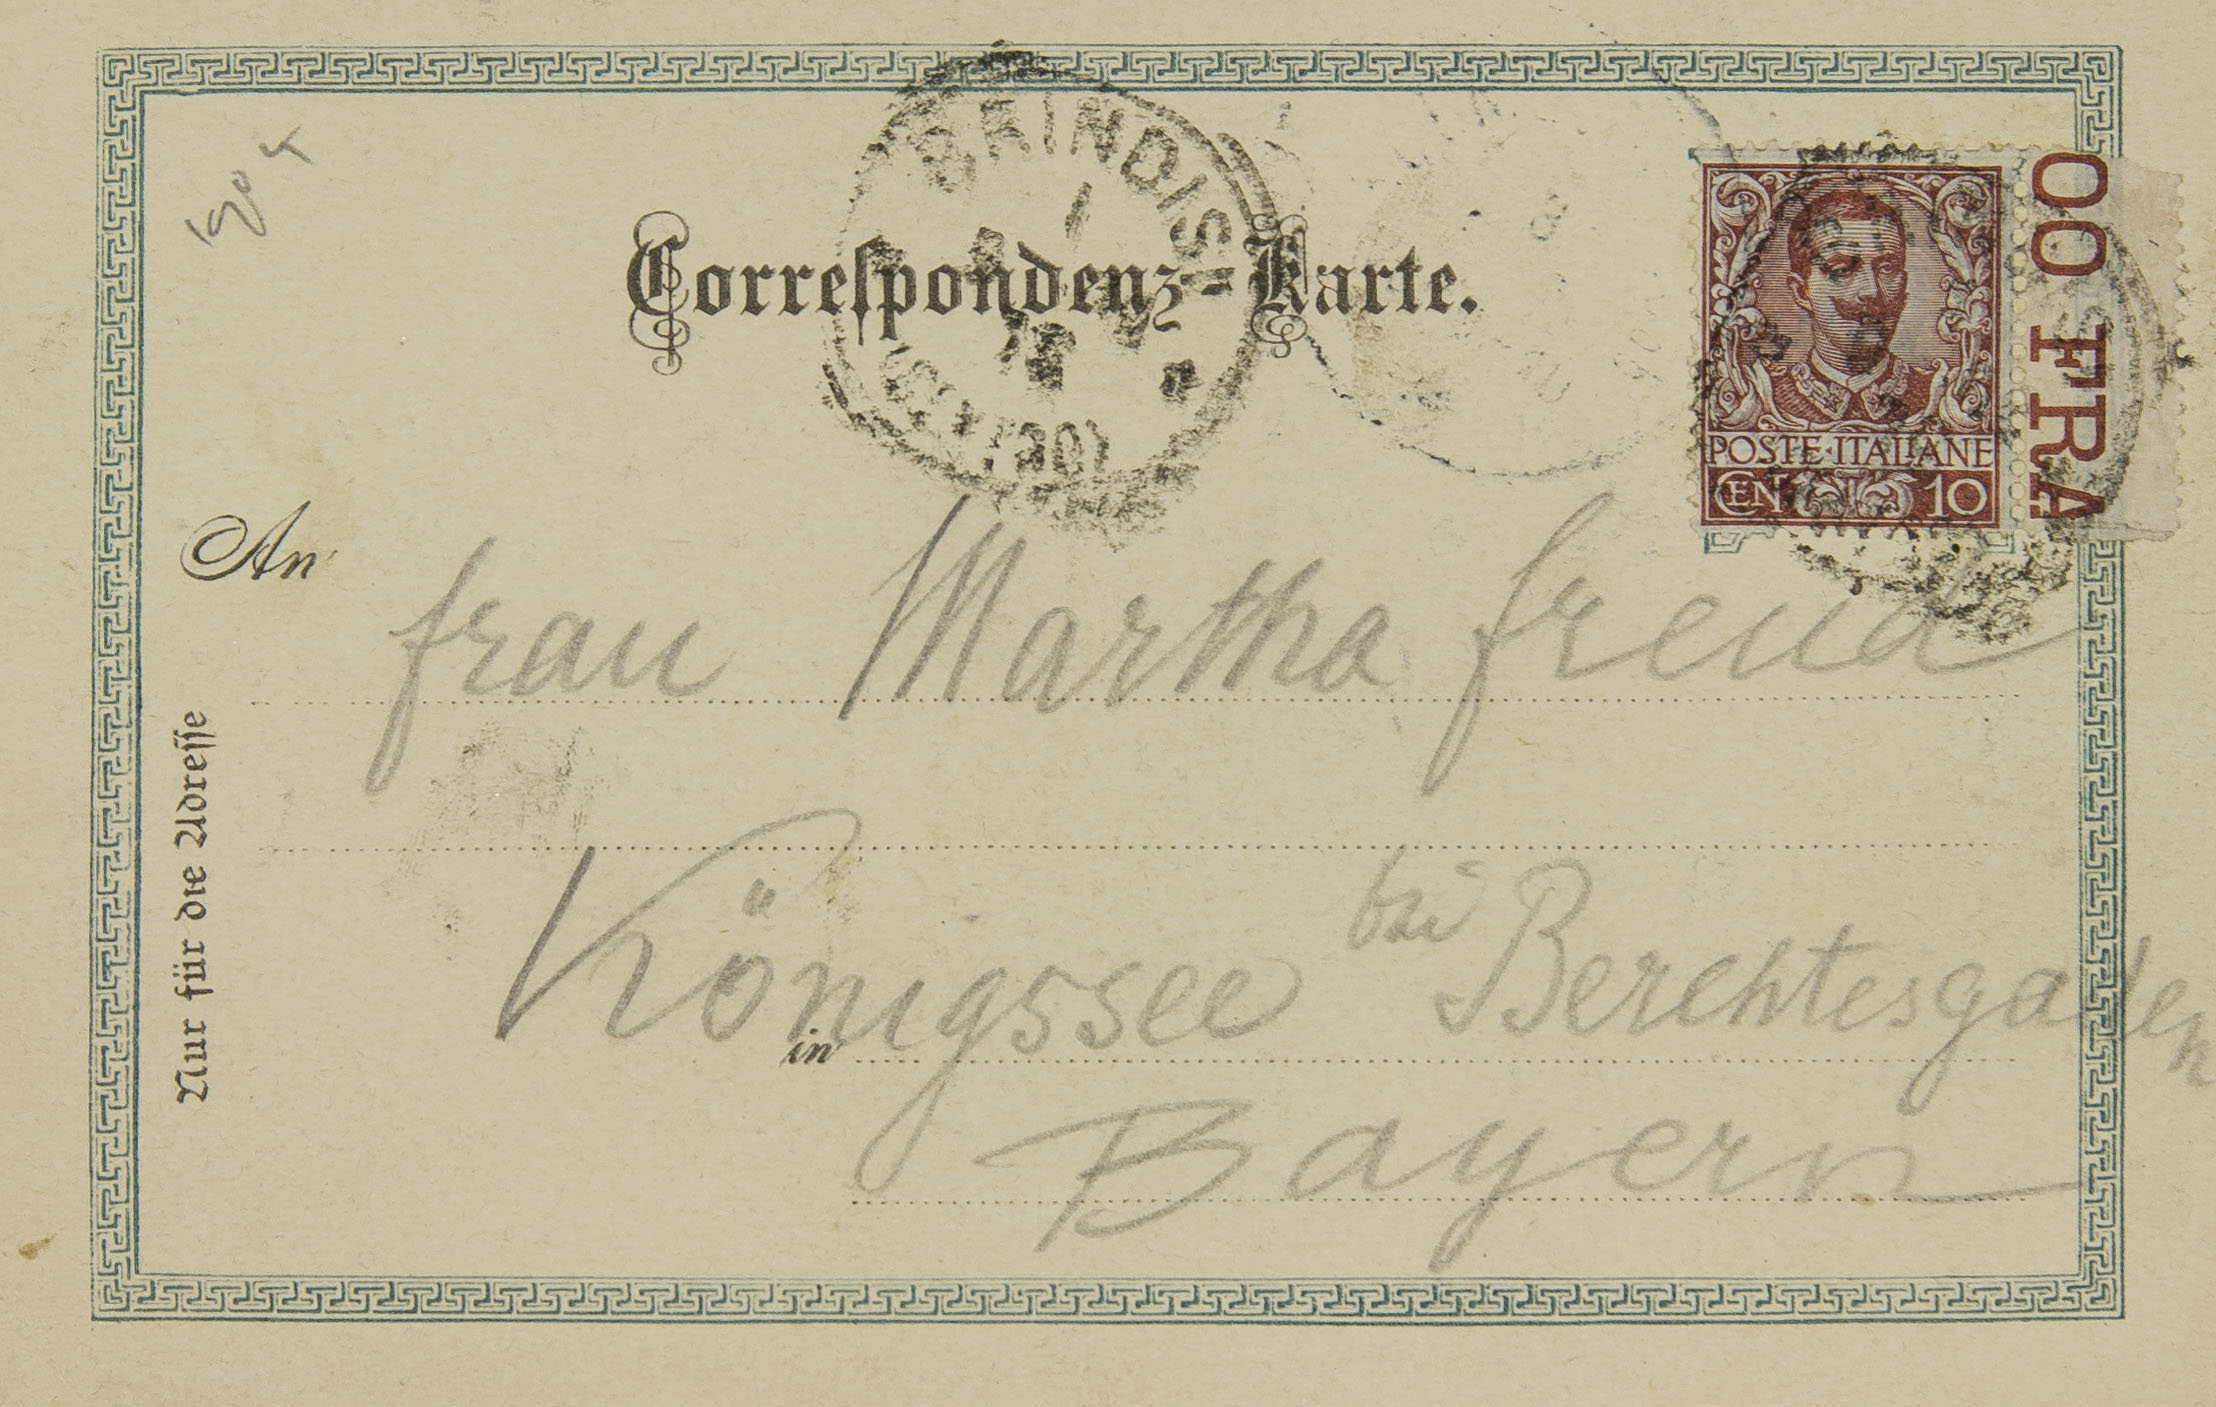 BRINDISI
(CENTRO)
Correspondenz-Karte.
POSTE·ITALIANE
CEN 10
OO FRA
An
Frau Martha Freud
Königssee bei Berchtesgaden
in
Bayern
Nur für die Adresse